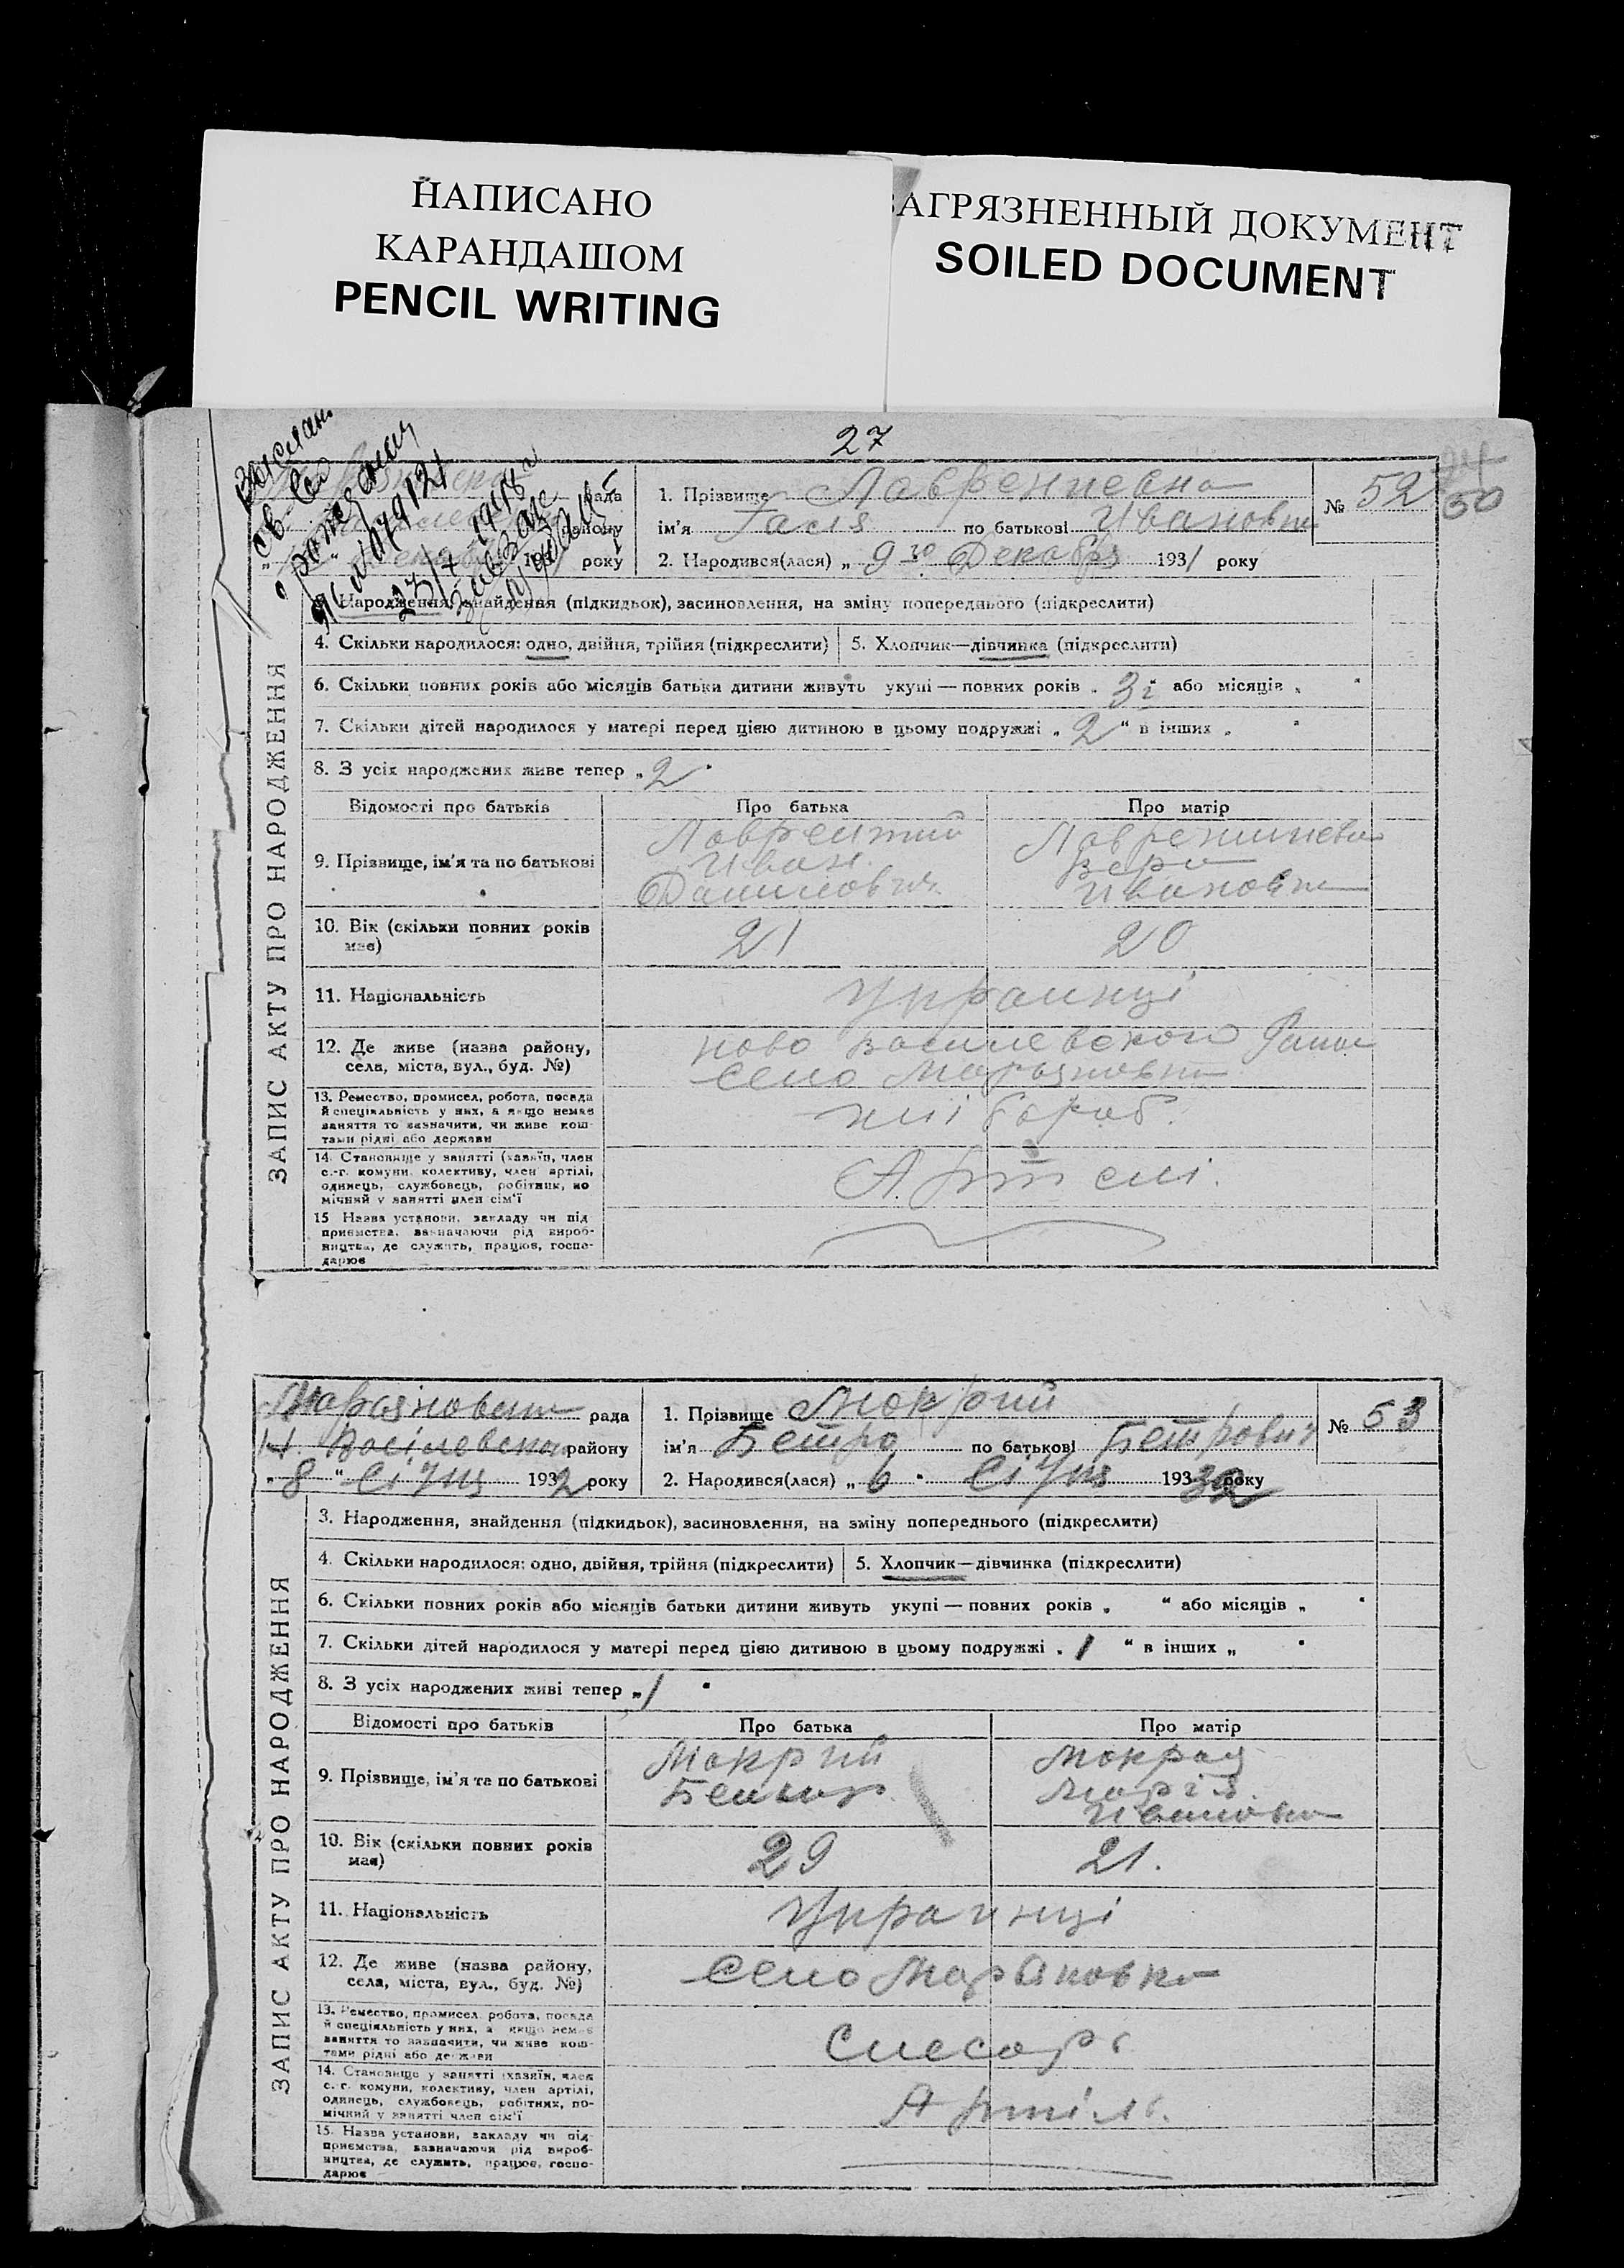 НАПИСАНО
КАРАНДАШОМ
PENCIL WRITING
ЗАГРЯЗНЕННЫЙ ДОКУМЕНТ
SOILED DOCUMENT
27
50
рада
району
193 року
1. Прізвище
ім'я Галя по батькові Ивановна
2. Народився(лася) „ 9го Декабря 1931 року
№ 52
23/7 1948
ЗАПИС АКТУ ПРО НАРОДЖЕННЯ
Народження, знайдення (підкидьок), засиновлення, на зміну попереднього (підкреслити)
4. Скільки народилося: одно, двійня, трійня (підкреслити) 5. Хлопчик—дівчинка (підкреслити)
6. Скільки повних років або місяців батьки дитини живуть укупі — повних років „ 3 “ або місяців „ “
7. Скільки дітей народилося у матері перед цією дитиною в цьому подружжі „ 2 “ в інших „ “
8. З усіх народжених живе тепер „ 2 “
Відомості про батьків Про батька Про матір
9. Прізвище, ім'я та по батькові
Лаврентий
Иван
Данилович
Вера
Ивановна
10. Вік (скільки повних років має) 21 20
11. Національність Украинці
12. Де живе (назва району, села, міста, вул., буд. №)
ново василевского
село Марьяновка
13. Ремество, промисел, робота, посада
й спеціяльність у них, а якщо немає
заняття то зазначити, чи живе кош-
тами рідні або держави
хлібороб.
14. Становище у занятті (хазяїн, член
с.-г. комуни, колективу, член артілі,
одинець, службовець, робітник, по
мічний у занятті член сім'ї
Артелі.
15 Назва установи, закладу чи під
приємства, зазначаючи рід вироб-
ництва, де служить, працює, госпо-
дарює
рада
Н. Васілевского району
„ 8 “ Січня 1932 року
1. Прізвище Мокрий
ім'я Бетро по батькові Бетрович
2. Народився(лася) „ 6 “ Січня 19332 року
№ 53
ЗАПИС АКТУ ПРО НАРОДЖЕННЯ
3. Народження, знайдення (підкидьок), засиновлення, на зміну попереднього (підкреслити)
4. Скільки народилося: одно, двійня, трійня (підкреслити) 5. Хлопчик—дівчинка (підкреслити)
6. Скільки повних років або місяців батьки дитини живуть укупі — повних років „ “ або місяців „ “
7. Скільки дітей народилося у матері перед цією дитиною в цьому подружжі „ 1 “ в інших „ “
8. З усіх народжених живі тепер „ 1 “
Відомості про батьків Про батька Про матір
9. Прізвище, ім'я та по батькові
Мокрий
Мокрая
Марія
Ивановна
10. Вік (скільки повних років має) 29 21.
11. Національність Украинці
12. Де живе (назва району, села, міста, вул., буд. №) село Марьяновка
13. Ремество, промисел, робота, посада
й спеціяльність у них, а якщо немає
заняття то зазначити, чи живе кош-
тами рідні або держави
Слесарь
14. Становище у занятті (хазяїн, член
с.-г. комуни, колективу, член артілі,
одинець, службовець, робітник, по-
мічний у занятті член сім'ї
Артіль.
15. Назва установи, закладу чи під
приємства, зазначаючи рід вироб-
ництва, де служить, працює, госпо-
дарює